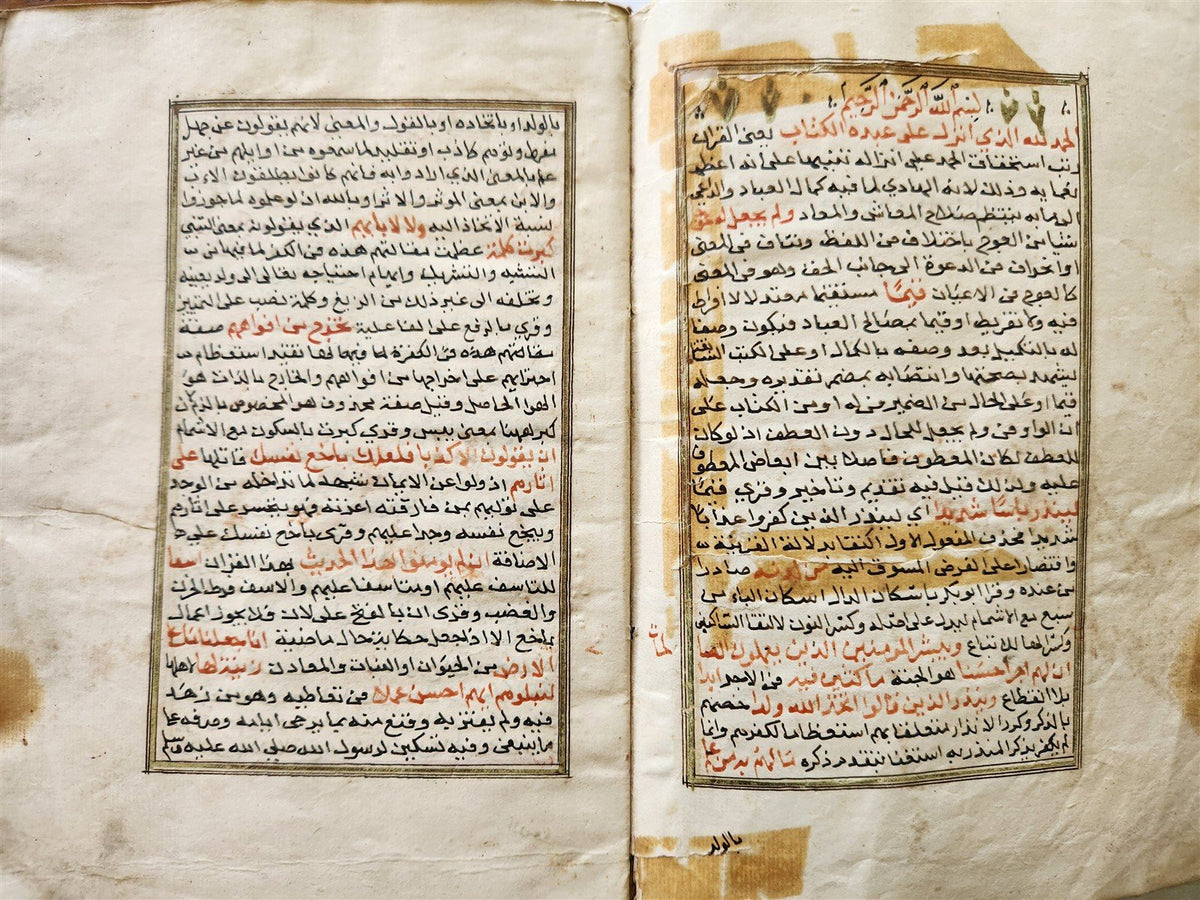 بسم الله الرحمن الرحيم
الحمد لله الذي انزل على عبده الكتاب يعني القران
رتب استحقاق الحمد على انزاله تنبيها على انه اعظم
نعمايه وذلك لانه الهادي لما فيه كمال العباد والداعي
الى ما به ينتظم صلاح المعاش والمعاد ولم يجعل له عوجا
شيا من العوج باختلاف في اللفظ وتناف في المعنى
او انحراف من الدعوة الى جانب الحق وهو في المعنى
كالعوج في الاعيان قيما مستقيما معتدلا لا افراط
فيه ولا تفريط او قيما بمصالح العباد فيكون وصفا
له بالتكميل بعد وصفه بالكمال او على الكتب السابقة
يشهد بصحتها وانتصابه بمضمر تقديره وجعله
قيما او على الحال من الضمير في له او من الكتاب على
ان الواو في ولم يجعل للحال دون العطف اذ لو كان
للعطف لكان المعطوف فاصلا بين ابعاض المعطوف
عليه ولذلك قيل فيه تقديم وتاخير وقري قيما
لينذر باسا شديدا اي لينذر الذين كفروا عذابا
شديدا فحذف المفعول الاول اكتفا بدلالة القرينة
واقتصارا على الغرض المسوق اليه من لدنه صادرا
من عنده وقرا ابو بكر باسكان الدال اسكان الباء من
سبع مع الاشمام ليدل على اصله وكسر النون لالتقا الساكنين
وكسر الها للاتباع ويبشر المومنين الذين يعملون الصا
لحات
ان لهم اجرا حسنا هو الجنة ماكثين فيه في الاجر ابدا
بلا انقطاع وينذر الذين قالوا اتخذ الله ولدا خصهم
بالذكر وكرر الانذار متعلقا بهم استعظاما لكفرهم وانما
لم يذكر المنذر به استغنا بتقدم ذكره ما لهم به من علم
بالولد
بالولد او باتخاذه او بالقول والمعنى لانهم يقولون عن جهل
مفرط وتوهم كاذب او تقليد لما سمعوه من اوايلهم من غير
علم بالمعنى الذي ارادوا به فانهم كانوا يطلقون الاب
والابن بمعنى الموثر والاثر او بالله اذ لو علموه لما جوزوا
نسبة الاتخاذ اليه ولا لابايهم الذي يقولون بمعنى التبني
كبرت كلمة عظمت مقالتهم هذه في الكفر لما فيها من
التشبيه والتشريك وايهام احتياجه تعالى الى ولد يعينه
ويخلفه الى غير ذلك من الزيغ وكلمة نصب على التمييز
وقري بالرفع على الفاعلية تخرج من افواههم صفة
مقالتهم هذه في الكفرة لما فيها لها تفيد استعظام
اجترايهم على اخراجها من افواههم والخارج بالذات هو
الهوا الحامل وقيل صفة محذوف هو المخصوص بالذم لان
كبر لههنا بمعنى بيس وقري كبرت بالسكون مع الاشمام
ان يقولون الا كذبا فلعلك باخع نفسك قاتلها على
اثارهم اذ ولوا عن الايمان شبهه لما تداخله من الوجد
على توليهم بمن فارقته اعزته فهو يتحسر على اثارهم
ويبخع نفسه وجدا عليهم وقري باخع نفسك على
الاضافة ان لم يومنوا بهذا الحديث بهذا القران اسفا
للتاسف عليهم او متاسفا عليهم والاسف فرط الحزن
والغضب وقري ان بالفتح على لان فلا يجوز اعمال
باخع الا اذا جعل حكاية حال ماضية انا جعلنا ما على
الارض من الحيوان او النبات والمعادن زينة لها لاهلها
لنبلوهم ايهم احسن عملا في تعاطيه وهو من زهد
فيه ولم يغتر به وقنع منه بما يزجي ايامه وصرفه على
ما ينبغي وفيه تسكين لرسول الله صلى الله عليه وسلم